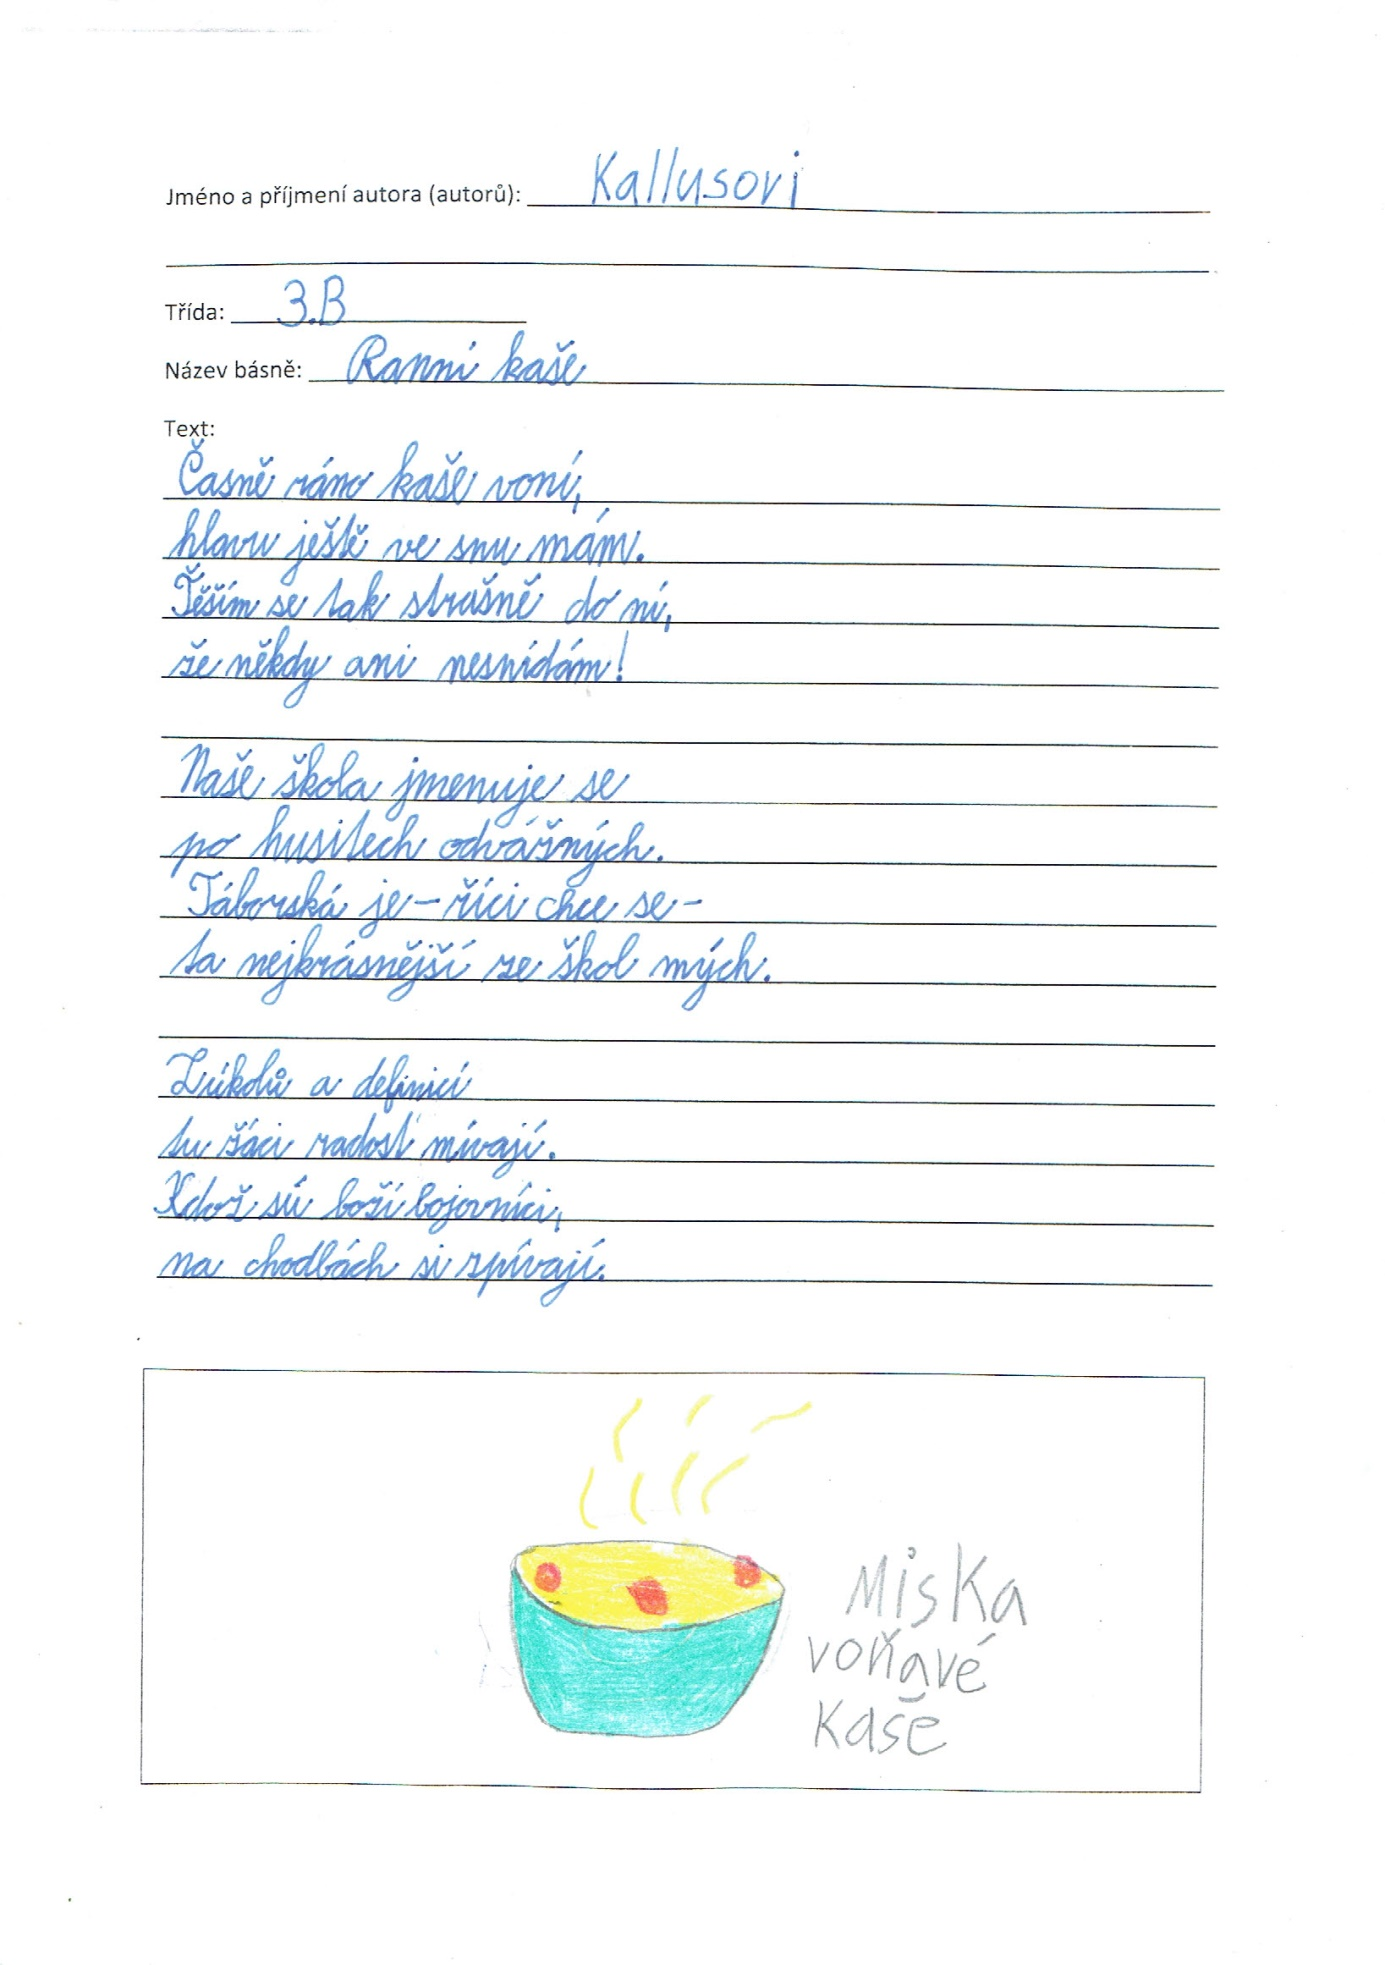 Jméno a příjmení autora (autorů): Kallusovi
Třída: 3.B
Název básně: Ranní kaše
Text:
Časně ráno kaše voní,
hlavu ještě ve snu mám.
Těším se tak strašně do ní,
že někdy ani nesnídám!
Naše škola jmenuje se
po husitech odvážných.
Táborská je - říci chce se -
ta nejkrásnější ze škol mých.
Z úkolů a definicí
tu žáci radost mívají.
Ktož sú boží bojovníci,
na chodbách si zpívají.
Miska
voňavé
Kaše